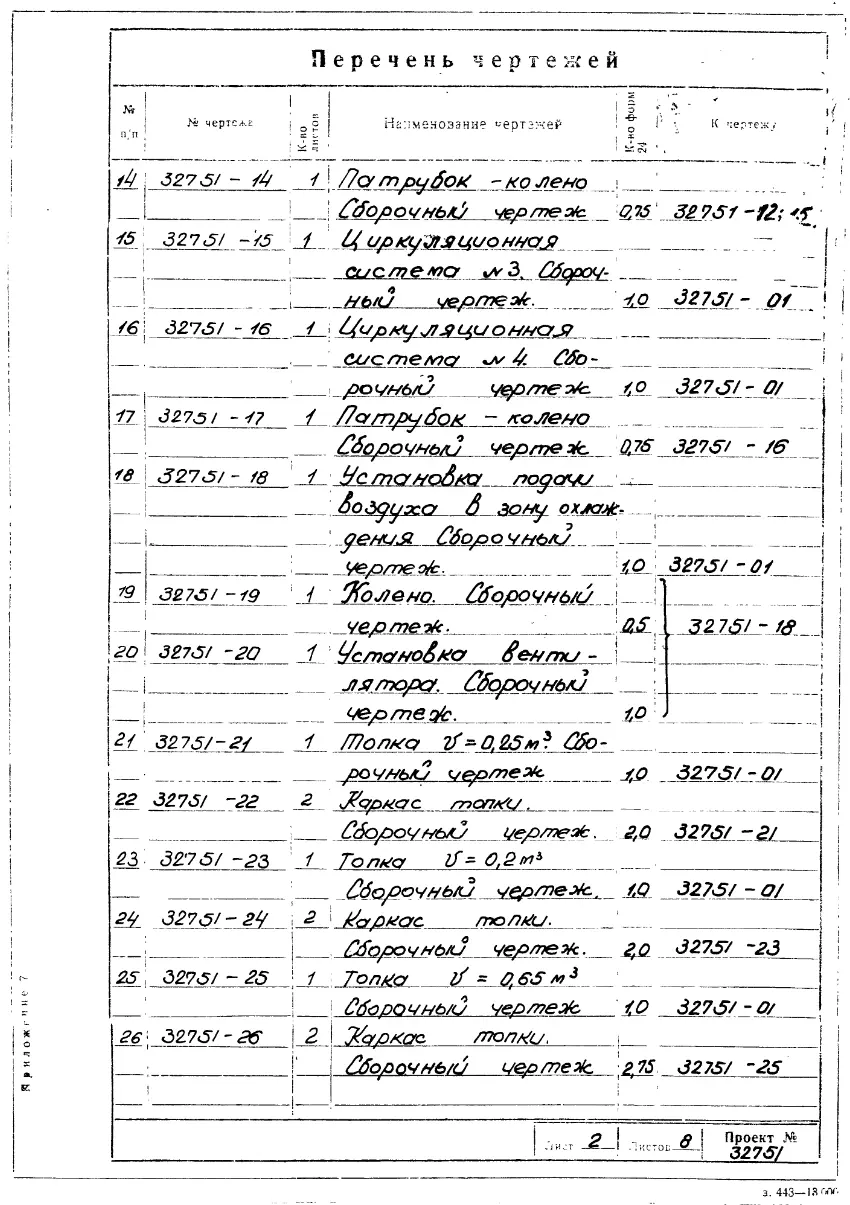 Перечень чертежей
№ п/п № чертежа К-во листов Наименование чертежей К-во форм 24 К чертежу
14 32751 - 14 1 Патрубок - колено
Сборочный чертеж 0,75 32751 - 12; 15
15 32751 - 15 1 Циркуляционная
система № 3. Сбороч-
ный чертеж. 1,0 32751 - 01
16 32751 - 16 1 Циркуляционная
система № 4. Сбо-
рочный чертеж 1,0 32751 - 01
17 32751 - 17 1 Патрубок - колено
Сборочный чертеж 0,75 32751 - 16
18 32751 - 18 1 Установка подачи
воздуха в зону охлаж-
дения Сборочный
чертеж. 1,0 32751 - 01
19 32751 - 19 1 Колено. Сборочный
чертеж. 0,5 32751 - 18
20 32751 - 20 1 Установка венти -
лятора. Сборочный
чертеж. 1,0
21 32751 - 21 1 Топка V = 0,25 м³. Сбо-
рочный чертеж 1,0 32751 - 01
22 32751 - 22 2 Каркас топки.
Сборочный чертеж. 2,0 32751 - 21
23 32751 - 23 1 Топка V = 0,2 м³
Сборочный чертеж. 1,0 32751 - 01
24 32751 - 24 2 Каркас топки.
Сборочный чертеж. 2,0 32751 - 23
25 32751 - 25 1 Топка V = 0,65 м³
Сборочный чертеж 1,0 32751 - 01
26 32751 - 26 2 Каркас топки.
Сборочный чертеж 2,75 32751 - 25
Приложение 7
Лист 2 Листов 8 Проект №
32751
з. 443—18